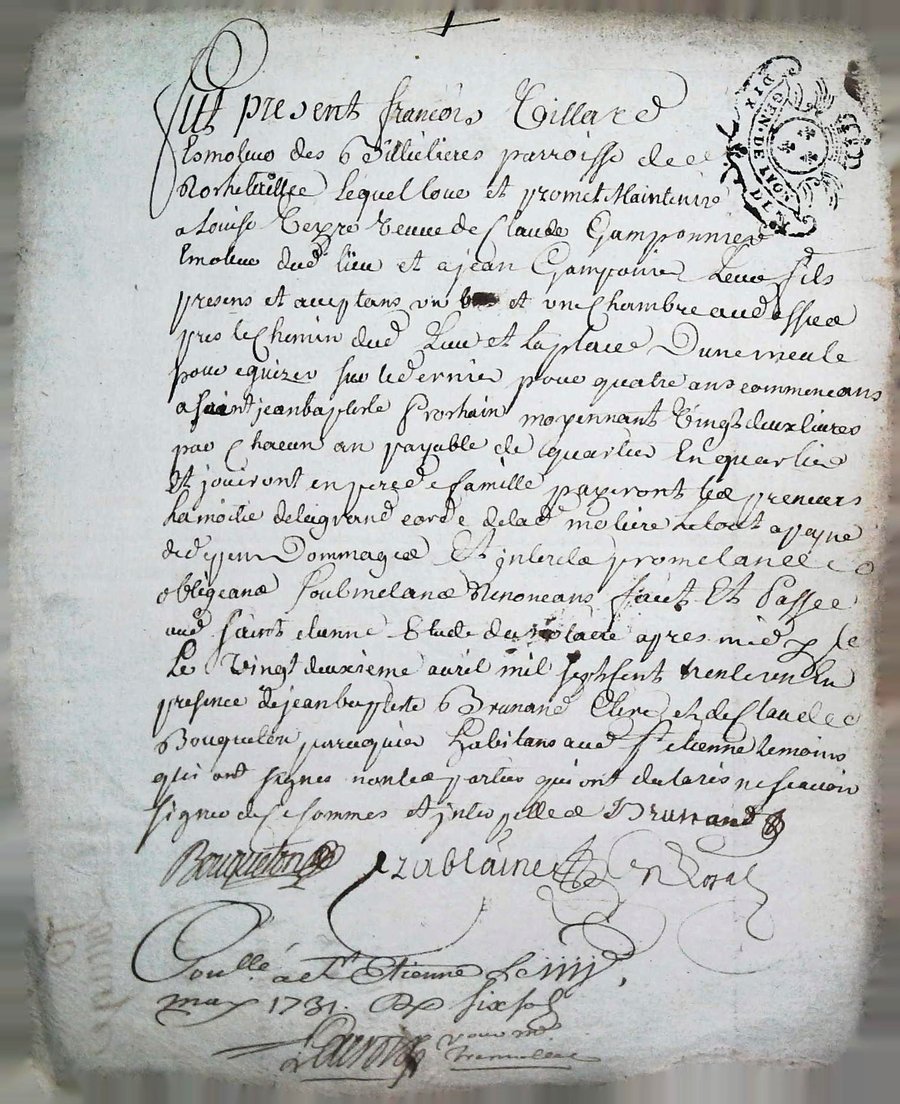 fut present françois Tillard
Esmoleuo des Villielieres parroisse de
Rochetaillee lequel loue et promet Maintenir
a Louise Veuve de Claude Gamponnier
Emoleuo dud lieu et a jean Gamponier Leuo fils
presens et aceptans un et une Chambre au dessee
pres le Chemin dud Lieu et la place Dune meule
pour eguizer sur le dernier pour quatre ans commencans
a saint jean baptiste Prochain moyennant Vingt deux livres
par Chacun an payable de quartier En quartier
Et joüiront en pere de famille payeront les preneurs
La moitie de la grand corde de lad moliere le tout a peyne
de depen Dommages Et interets promelans
obligeans Soubmetans Renonceans fait Et Passee
aud saint etienne Etude du notaire apres midy
Le Vingt deuxieme avril mil sept sent trente un En
presence de jean baptiste Brunand Clerc et de Claude
Bouqueton peruquier habitans aud St etienne temoins
qui ont signes non les parties qui ont declarés ne scavoir
signer de ce sommes et interpelles Brunand
Bouqueton
Conllé a St Etienne Le iiij
may 1731. six sols